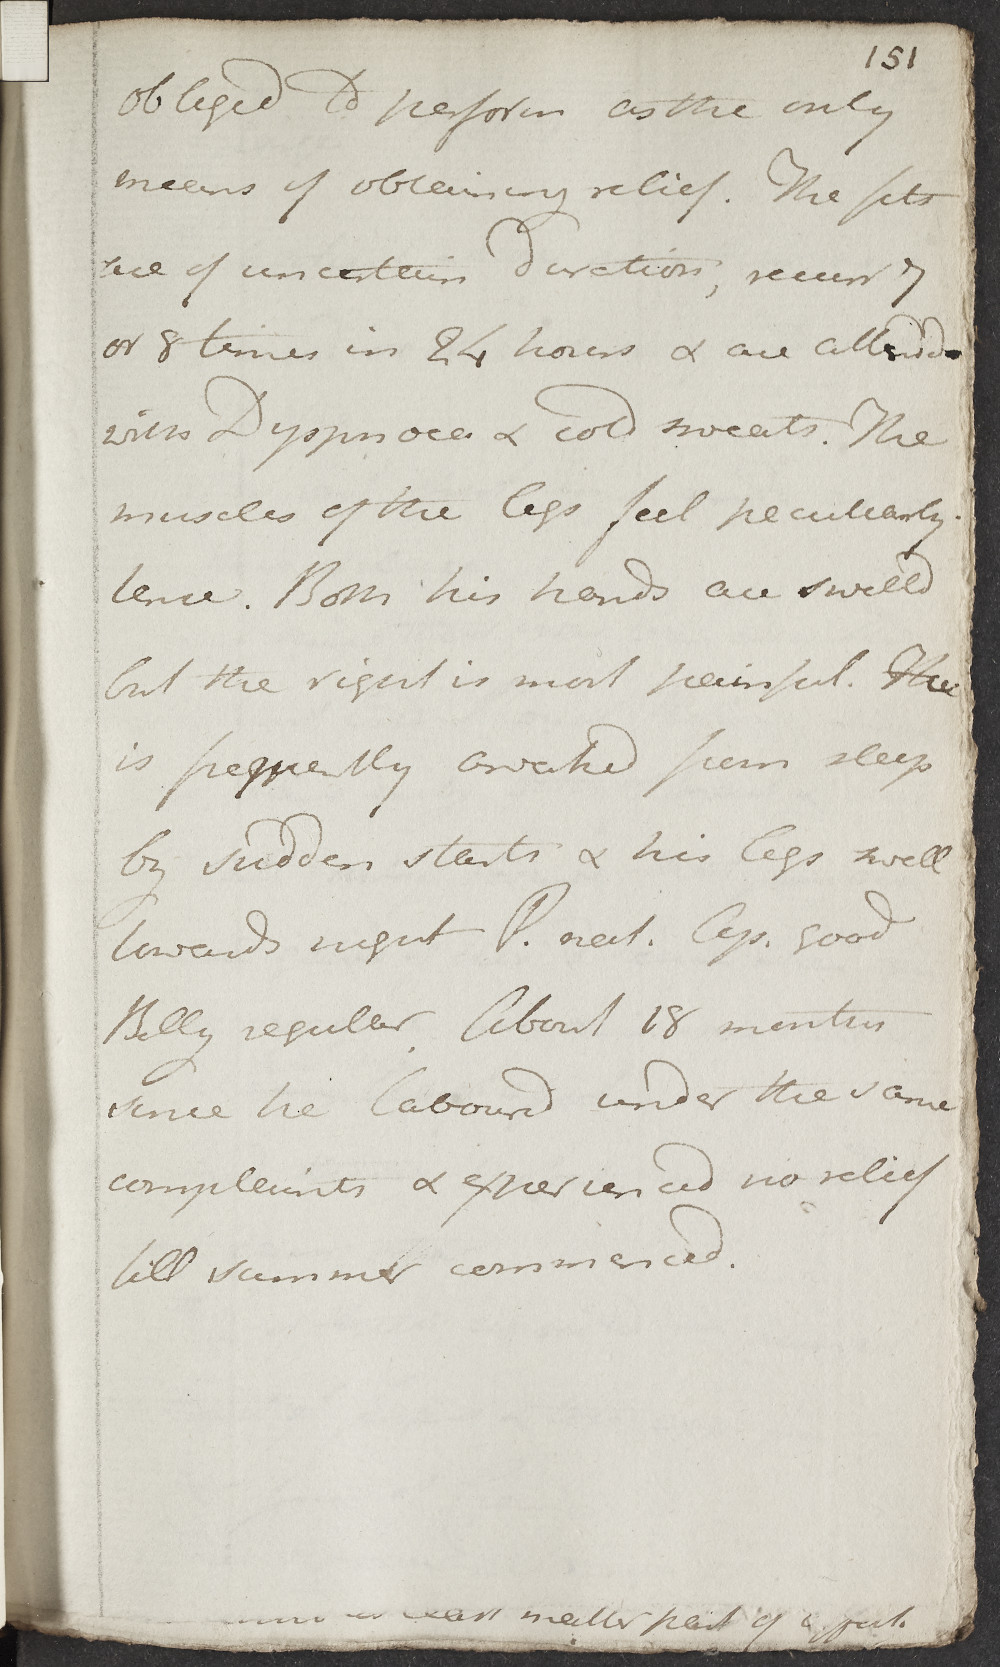 151
obliged to perform as the only
means of obtaining relief. The fits
are of uncertain duration, recurr 7
or 8 times in 24 hours & are attended
with Dyspnoea & cold sweats. The
muscles of the legs feel peculiarly
tense. Both his hands are swelld
but the right is most painful. He
is frequently awaked from sleep
by sudden starts & his legs swell
towards night P. nat. Ap. good
Belly regular. About 18 months
since he labourd under the same
complaints & experienced no relief
till summer commenced.
matter part of